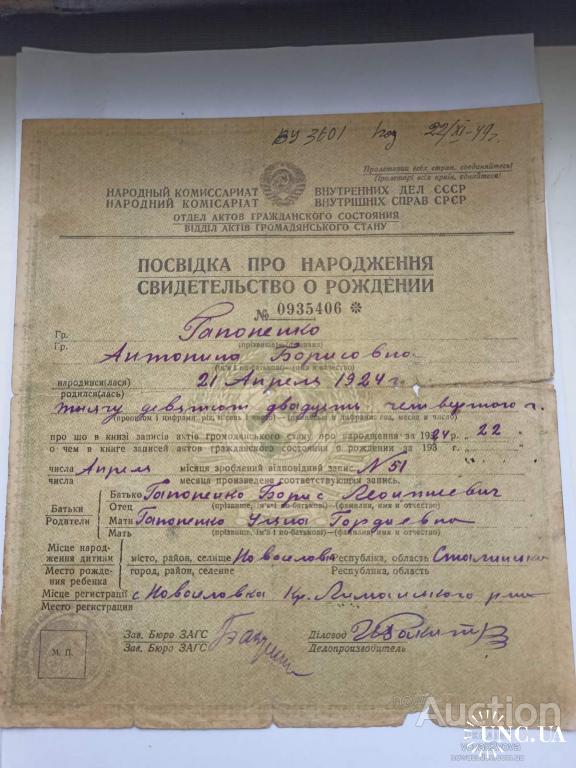 ВУ 3601 22/XI-49 г.
Пролетарии всех стран, соединяйтесь!
Пролетарі всіх країн, єднайтеся!
НАРОДНЫЙ КОМИССАРИАТ ВНУТРЕННИХ ДЕЛ СССР
НАРОДНИЙ КОМІСАРІАТ ВНУТРІШНІХ СПРАВ СРСР
ОТДЕЛ АКТОВ ГРАЖДАНСКОГО СОСТОЯНИЯ
ВІДДІЛ АКТІВ ГРОМАДЯНСЬКОГО СТАНУ
ПОСВІДКА ПРО НАРОДЖЕННЯ
СВИДЕТЕЛЬСТВО О РОЖДЕНИИ
№ 0935406 *
Гр. Гапоненко
Гр. (прізвище) — (фамилия)
Антонина Борисовна
(ім'я і по-батькові) — (имя и отчество)
народився(лася) 21 Апреля 1924 г.
родился(лась)
тысячу девятсот двадцать четвертого г.
(прописом і цифрами: рік, місяць, число) — (прописью и цифрами: год, месяц и число)
про що в книзі записів актів громадянського стану про народження за 1924 р. 22
о чем в книге записей актов гражданского состояния о рождении за 193 г.
числа Апреля місяця зроблений відповідний запис N 51
числа месяца произведена соответствующая запись.
Батьки Батько Гапоненко Борис Леонтиевич
Родители Отец (прізвище, ім'я і по-батькові) — (фамилия, имя и отчество)
Мати Гапоненко Ульяна Гордеевна
Мать (прізвище, ім'я і по-батькові) — (фамилия, имя и отчество)
Місце народження дитини місто, район, селище Новоселовка Республіка, область Сталинска
Место рождения ребенка город, район, селение Республика, область
Місце регистрації с Новоселовка Кр. Лиманского р-на
Место регистрации
М. П.
Зав. Бюро ЗАГС Діловод
Зав. Бюро ЗАГС Делопроизводитель
Auction
UNC.UA